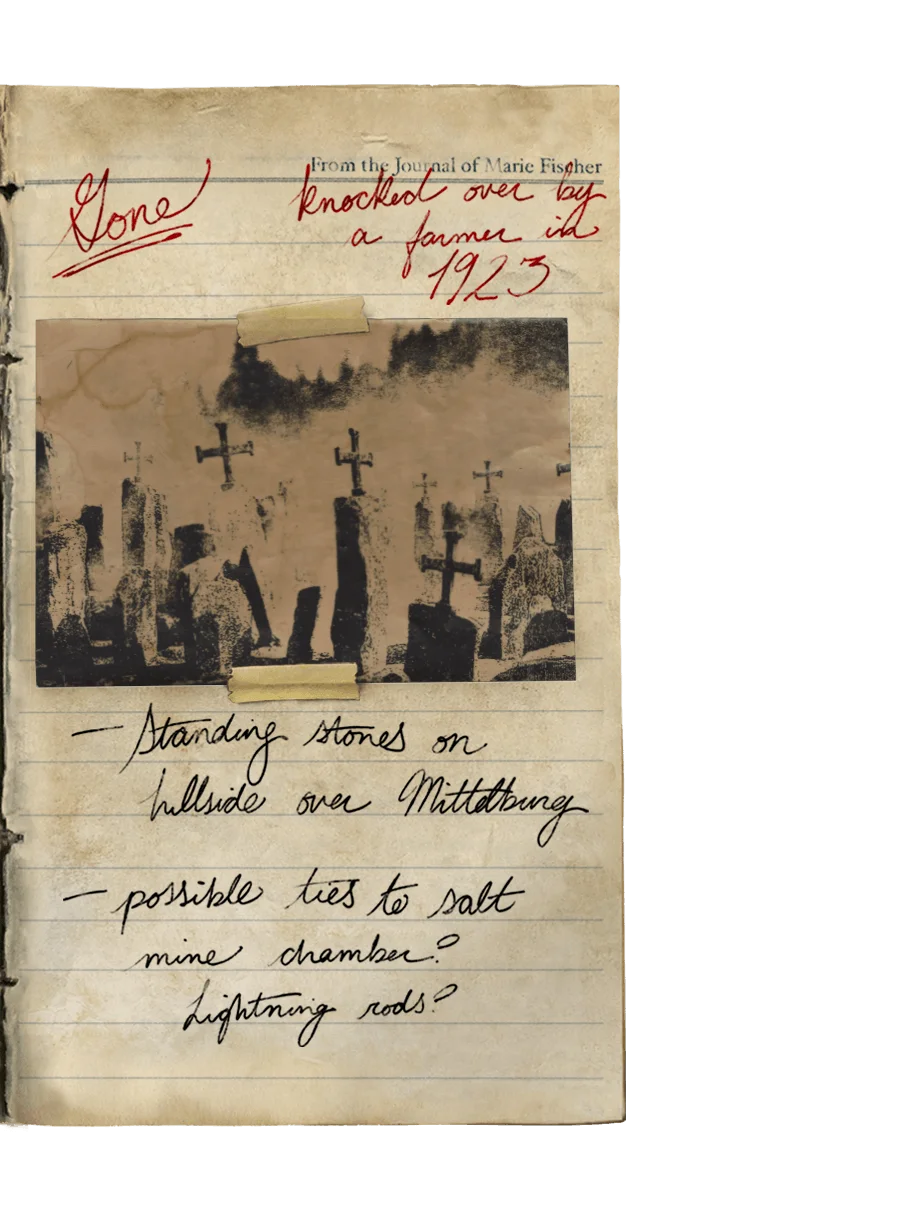 From the Journal of Marie Fischer
Gone
knocked over by
a farmer in
1923
— Standing stones on
hillside over Mittelburg
— possible ties to salt
mine chamber?
Lightning rods?